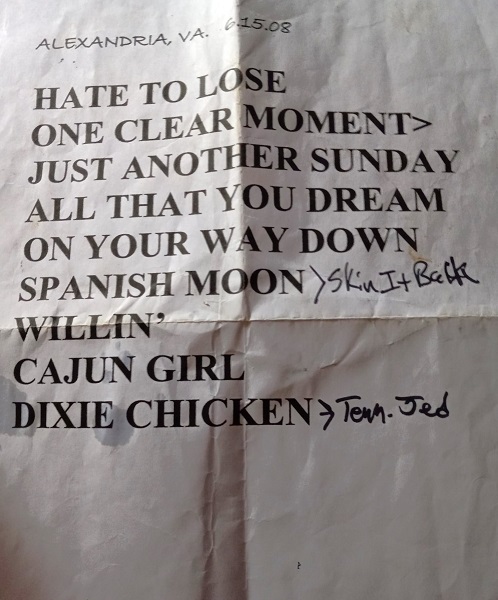 ALEXANDRIA, VA. 6.15.08
HATE TO LOSE
ONE CLEAR MOMENT>
JUST ANOTHER SUNDAY
ALL THAT YOU DREAM
ON YOUR WAY DOWN
SPANISH MOON >Skin It Back
WILLIN'
CAJUN GIRL
DIXIE CHICKEN >Tenn. Jed